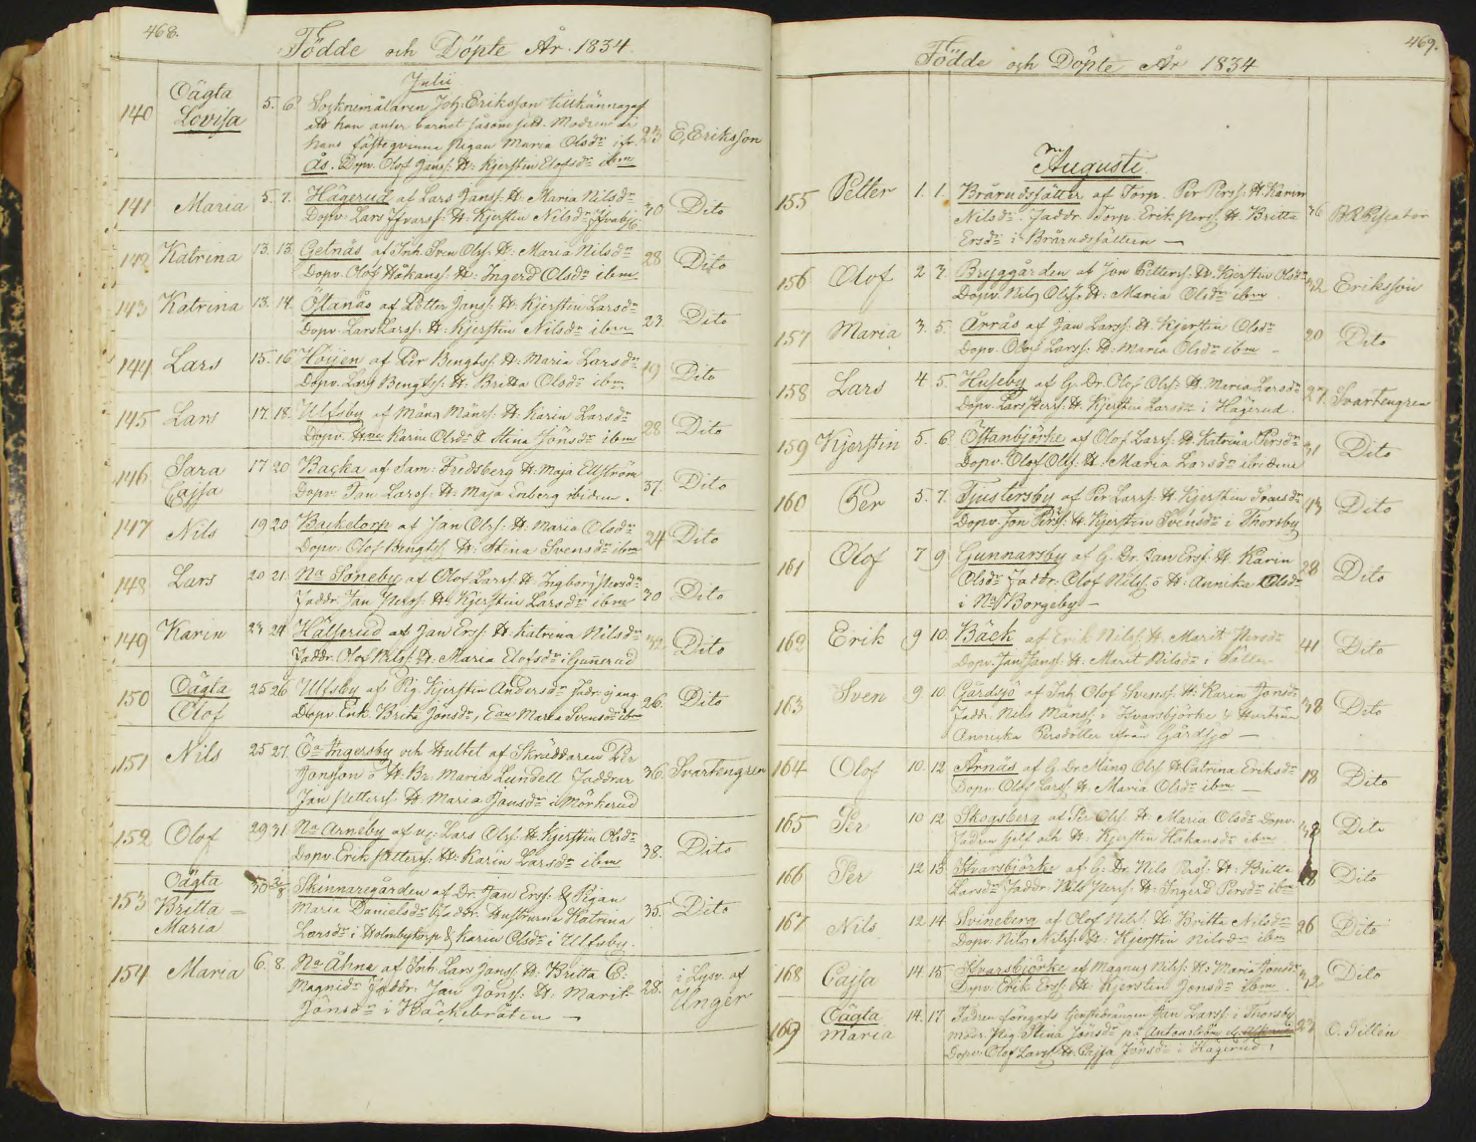 468.
Födde och Döpte År 1834.
Julii
140 Oägta Lovisa 5. 6. Socknemålaren Joh: Eriksson tillkännagaf
att han anser barnet såsom sitt. Modren är
hans fästeqvinna Pigan Maria Olsdr ifr. 23 E, Eriksson
Ås. Dopv. Olof Jansf. H: Kjerstin Elofsdr ibm
141 Maria 5. 7. Hägerud af Lars Jansf. H: Maria Nilsdr
Dopv. Lars H: Kjerstin Nilsdr 30 Dito
142 Katrina 13. 13. Getnäs af Inh. Sven Olsf. H: Maria Nilsdr
Dopv. Olof Håkansf. H: Ingerd Olsdr ibm 28 Dito
143 Katrina 13. 14. Östanås af Petter Jansf. H: Kjerstin Larsdr
Dopv. Lars Larsf. H: Kjerstin Nilsdr ibm 23. Dito
144 Lars 15. 16 Höijen af Per Bengtsf. H: Maria Larsdr
Dopv. Lars Bengtsf. H: Britta Olsdr ibm 19 Dito
145 Lars 17. 18. Ulfsby af Måns Månsf. H: Karin Larsdr
Dopv. Karin Olsdr & Stina Jönsdr ibm 28 Dito
146 Sara Cajsa 17 20 Backa af Sam: Fredsberg H: Maja Ellström
Dopv. Jan Larsf. H: Maja Enberg ibidem. 37. Dito
147 Nils 19 20 Backetorp af Jan Olsf. H: Maria Olsdr
Dopv. Olof Bengtsf. H: Stina Svensdr ibm 24 Dito
148 Lars 20 21 Na Söneby af Olof Larsf. H: Ingborg Persdr
Faddr. Jan Nilsf. H: Kjerstin Larsdr ibm 30 Dito
149 Karin 23 24 Hällserud af Jan Ersf. H: Katrina Nilsdr
Faddr. Olof Nilsf. H: Maria Elofsdr i Gunnerud 32. Dito
150 Oägta Olof 25 26 Ulfsby af Pig. Kjerstin Andersdr Fadr. ej ang
Dopv. Enk. Brita Jönsdr, Maria Svensdr ibm 26. Dito
151 Nils 25 27. Öa Ingersby och Hultet af Skräddaren Per
Jonsson o H: Br. Maria Lundell Faddrar 36. Svartengren
Jan Pettersf. H: Maria Jansdr i Mörkerud
152 Olof 29 31. Na Arneby af Lars Olsf. H: Kjerstin Olsdr
Dopv. Erik Pettersf. H: Karin Larsdr ibm 38. Dito
153 Oägta Britta Maria 30 2/8 Skinnaregården af Dr. Jan Ersf. & Pigan
Maria Danielsdr Faddr. Hustrurna Katrina 35. Dito
Larsdr i Holmbytorp & Karin Olsdr i Ulfsby.
154 Maria 6. 8. Na Åhna af Inh. Lars Jansf. H: Britta C:
Magnidr Faddr: Jan Jönsf. H: Marit 28. i Lysv. af Unger
Jönsdr i Häckebråten —
469.
Födde och Döpte År 1834
Augusti
155 Petter 1. 1. Brårudsfallet af Torp. Per Persf. H: Karin
Nilsdr. Faddr. Torp. Erik Persf. H: Britta 36 Piscator
Ersdr i Brårudsfallen —
156 Olof 2. 3. Bryggården af Jon Pettersf. H: Kjerstin Olsdr
Dopv. Nils Olsf. H: Maria Olsdr ibm 32 Eriksson
157 Maria 3. 5. Årås af Jan Larsf. H: Kjerstin Olsdr
Dopv. Olof Larsf. H: Maria Olsdr ibm — 20 Dito
158 Lars 4. 5. Huseby af G. Dr. Olof Olsf. H: Maria Larsdr
Dopv. Lars Persf. H: Kjerstin Larsdr i Hägerud 27. Svartengren
159 Kjerstin 5. 6. Östanbjörke af Olof Larsf. H: Katrina Persdr
Dopv. Olof Olsf. H: Maria Larsdr ibidem 31 Dito
160 Per 5. 7. Tjustersby af Per Larsf. H: Kjerstin Svensdr
Dopv. Jon Persf. H: Kjerstin Svensdr i Thorsby 43 Dito
161 Olof 7 9 Gunnarsby af G. Dr. Jan Ersf. H: Karin
Olsdr Faddr. Olof Nilsf. o H: Annika Olsdr 28 Dito
i Na Borgeby —
162 Erik 9 10. Bäck af Erik Nilsf. H: Marit Persdr
Dopv. Jan Jansf. H: Marit Nilsdr i 41 Dito
163 Sven 9 10 Gårdsjö af Inh. Olof Svensf. H: Karin Jonsdr
Faddr. Nils Månsf. i Hvarsbjörke & Hustrun 38 Dito
Annika Persdotter ifrån Gårdsjö —
164 Olof 10. 12 Årnäs af G. Dr. Måns Olsf. H: Catrina Eriksdr
Dopv. Olof Larsf. H. Maria Olsdr ibm — 18 Dito
165 Per 10 12 Skogsberg af Per Olsf. H: Maria Olsdr Dopv.
Fadren Self och H: Kjerstin Håkansdr ibm 38 Dito
166 Per 12 13. Hvarsbjörke af G: Dr. Nils Persf: H: Britta
Larsdr Faddr. Nils Persf. H: Ingerd Persdr ibm 28 Dito
167 Nils 12 14 Svineberg af Olof Nilsf. H: Britta Nilsdr
Dopv. Nils Nilsf. H: Kjerstin Nilsdr ibm 26 Dito
168 Cajsa 14 15 Hvarsbjörke af Magnus Nilsf: H: Maria Jonsdr
Dopv. Erik Ersf. H: Kjerstin Jonsdr ibm. 32 Dito
169 Oägta Maria 14. 17 Fadren föregafs Jan Larsf. i Thorsby
modr. Pig Stina Jönsdr på 23 O. Tillén
Dopv. Olof Larsf. H: Cajsa Jönsdr i Hägerud.